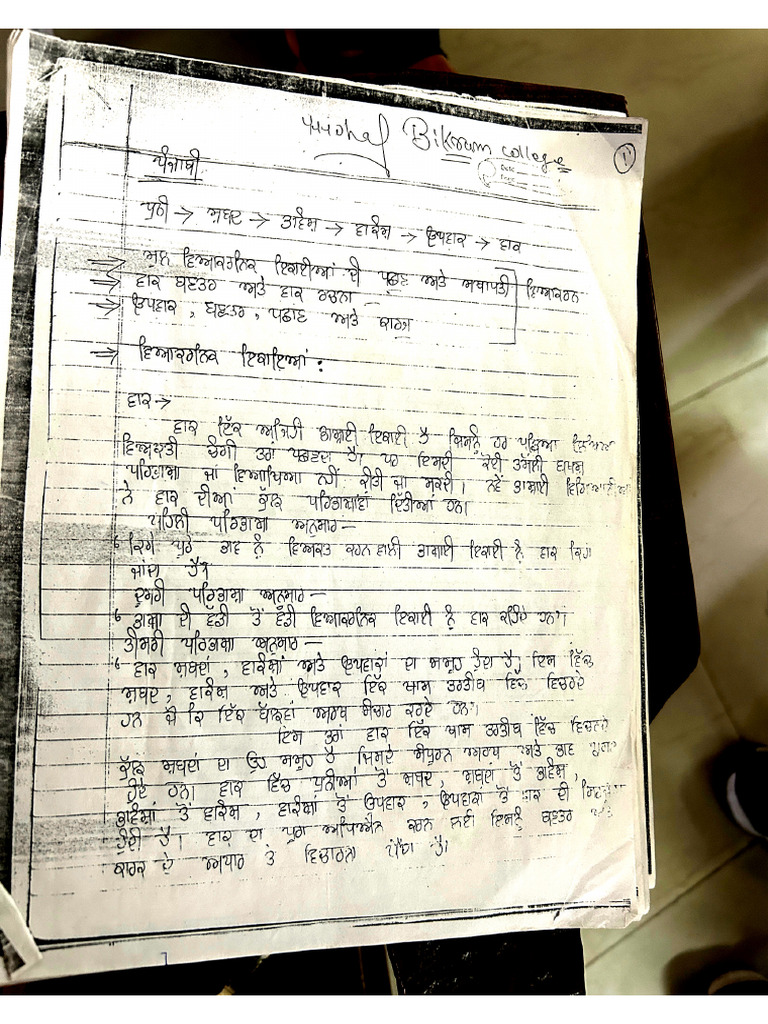 Bikram College
1
ਪੰਜਾਬੀ
ਧੁਨੀ → ਸ਼ਬਦ → ਭਾਵੰਸ਼ → ਵਾਕੰਸ਼ → ਉਪਵਾਕ → ਵਾਕ
⇒ ਮੂਲ ਵਿਆਕਰਨਿਕ ਇਕਾਈਆਂ ਦੀ ਪਛਾਣ ਅਤੇ ਸਥਾਪਤੀ ਵਿਆਕਰਨ
⇒ ਵਾਕ ਬਣਤਰ ਅਤੇ ਵਾਕ ਰਚਨਾ
→ ਉਪਵਾਕ, ਬਣਤਰ, ਪਛਾਣ ਅਤੇ ਕਾਰਜ
⇒ ਵਿਆਕਰਨਿਕ ਇਕਾਇਆਂ :
ਵਾਕ →
ਵਾਕ ਇੱਕ ਅਜਿਹੀ ਭਾਸ਼ਾਈ ਇਕਾਈ ਹੈ ਜਿਸਨੂੰ ਹਰ ਪੜ੍ਹਿਆ ਲਿਖਿਆ
ਵਿਅਕਤੀ ਚੰਗੀ ਤਰਾਂ ਪਛਾਣਦਾ ਹੈ। ਪਰ ਇਸਦੀ ਕੋਈ ਤਸੱਲੀ ਬਖਸ਼
ਪਰਿਭਾਸ਼ਾ ਜਾਂ ਵਿਆਖਿਆ ਨਹੀਂ ਕੀਤੀ ਜਾ ਸਕਦੀ। ਨਵੇਂ ਭਾਸ਼ਾਈ
ਨੇ ਵਾਕ ਦੀਆਂ ਕੁੱਲ ਪਰਿਭਾਸ਼ਾਵਾਂ ਦਿੱਤੀਆਂ ਹਨ।
ਪਹਿਲੀ ਪਰਿਭਾਸ਼ਾ ਅਨੁਸਾਰ —
‘ ਕਿਸੇ ਪੂਰੇ ਭਾਵ ਨੂੰ ਵਿਅਕਤ ਕਰਨ ਵਾਲੀ ਭਾਸ਼ਾਈ ਇਕਾਈ ਨੂੰ ਵਾਕ ਕਿਹਾ
ਜਾਂਦਾ ਹੈ।
ਦੂਸਰੀ ਪਰਿਭਾਸ਼ਾ ਅਨੁਸਾਰ —
‘ ਭਾਸ਼ਾ ਦੀ ਵੱਡੀ ਤੋਂ ਵੱਡੀ ਵਿਆਕਰਨਿਕ ਇਕਾਈ ਨੂੰ ਵਾਕ ਕਹਿੰਦੇ ਹਨ’।
ਤੀਸਰੀ ਪਰਿਭਾਸ਼ਾ ਅਨੁਸਾਰ —
‘ ਵਾਕ ਸ਼ਬਦਾਂ, ਵਾਕੰਸ਼ਾਂ ਅਤੇ ਉਪਵਾਕਾਂ ਦਾ ਸਮੂਹ ਹੁੰਦਾ ਹੈ, ਜਿਸ ਵਿੱਚ
ਸ਼ਬਦ, ਵਾਕੰਸ਼ ਅਤੇ ਉਪਵਾਕ ਇੱਕ ਖਾਸ ਤਰਤੀਬ ਵਿੱਚ ਵਿਚਰਦੇ
ਹਨ ਜੋ ਕਿ ਇੱਕ ਅਰਥ ਸੰਚਾਰ ਕਰਦੇ ਹਨ’।
ਇਸ ਤਰਾਂ ਵਾਕ ਇੱਕ ਖਾਸ ਤਰਤੀਬ ਵਿੱਚ ਵਿਚਰਦੇ
ਕੁੱਲ ਸ਼ਬਦਾਂ ਦਾ ਉਹ ਸਮੂਹ ਹੈ ਜਿਸਦੇ ਸੰਪੂਰਨ ਅਰਥ ਅਤੇ ਭਾਵ
ਹੁੰਦੇ ਹਨ। ਵਾਕ ਵਿੱਚ ਧੁਨੀਆਂ ਤੋਂ ਸ਼ਬਦ, ਸ਼ਬਦਾਂ ਤੋਂ ਭਾਵੰਸ਼,
ਭਾਵੰਸ਼ਾਂ ਤੋਂ ਵਾਕੰਸ਼, ਵਾਕੰਸ਼ਾਂ ਤੋਂ ਉਪਵਾਕ, ਉਪਵਾਕਾਂ ਤੋਂ ਵਾਕ ਦੀ
ਹੁੰਦੀ ਹੈ। ਵਾਕ ਦਾ ਪੂਰਾ ਅਧਿਐਨ ਕਰਨ ਲਈ ਇਸਨੂੰ ਬਣਤਰ ਅਤੇ
ਕਾਰਜ ਦੇ ਅਧਾਰ ਤੇ ਵਿਚਾਰਨਾ ਪੈਂਦਾ ਹੈ।